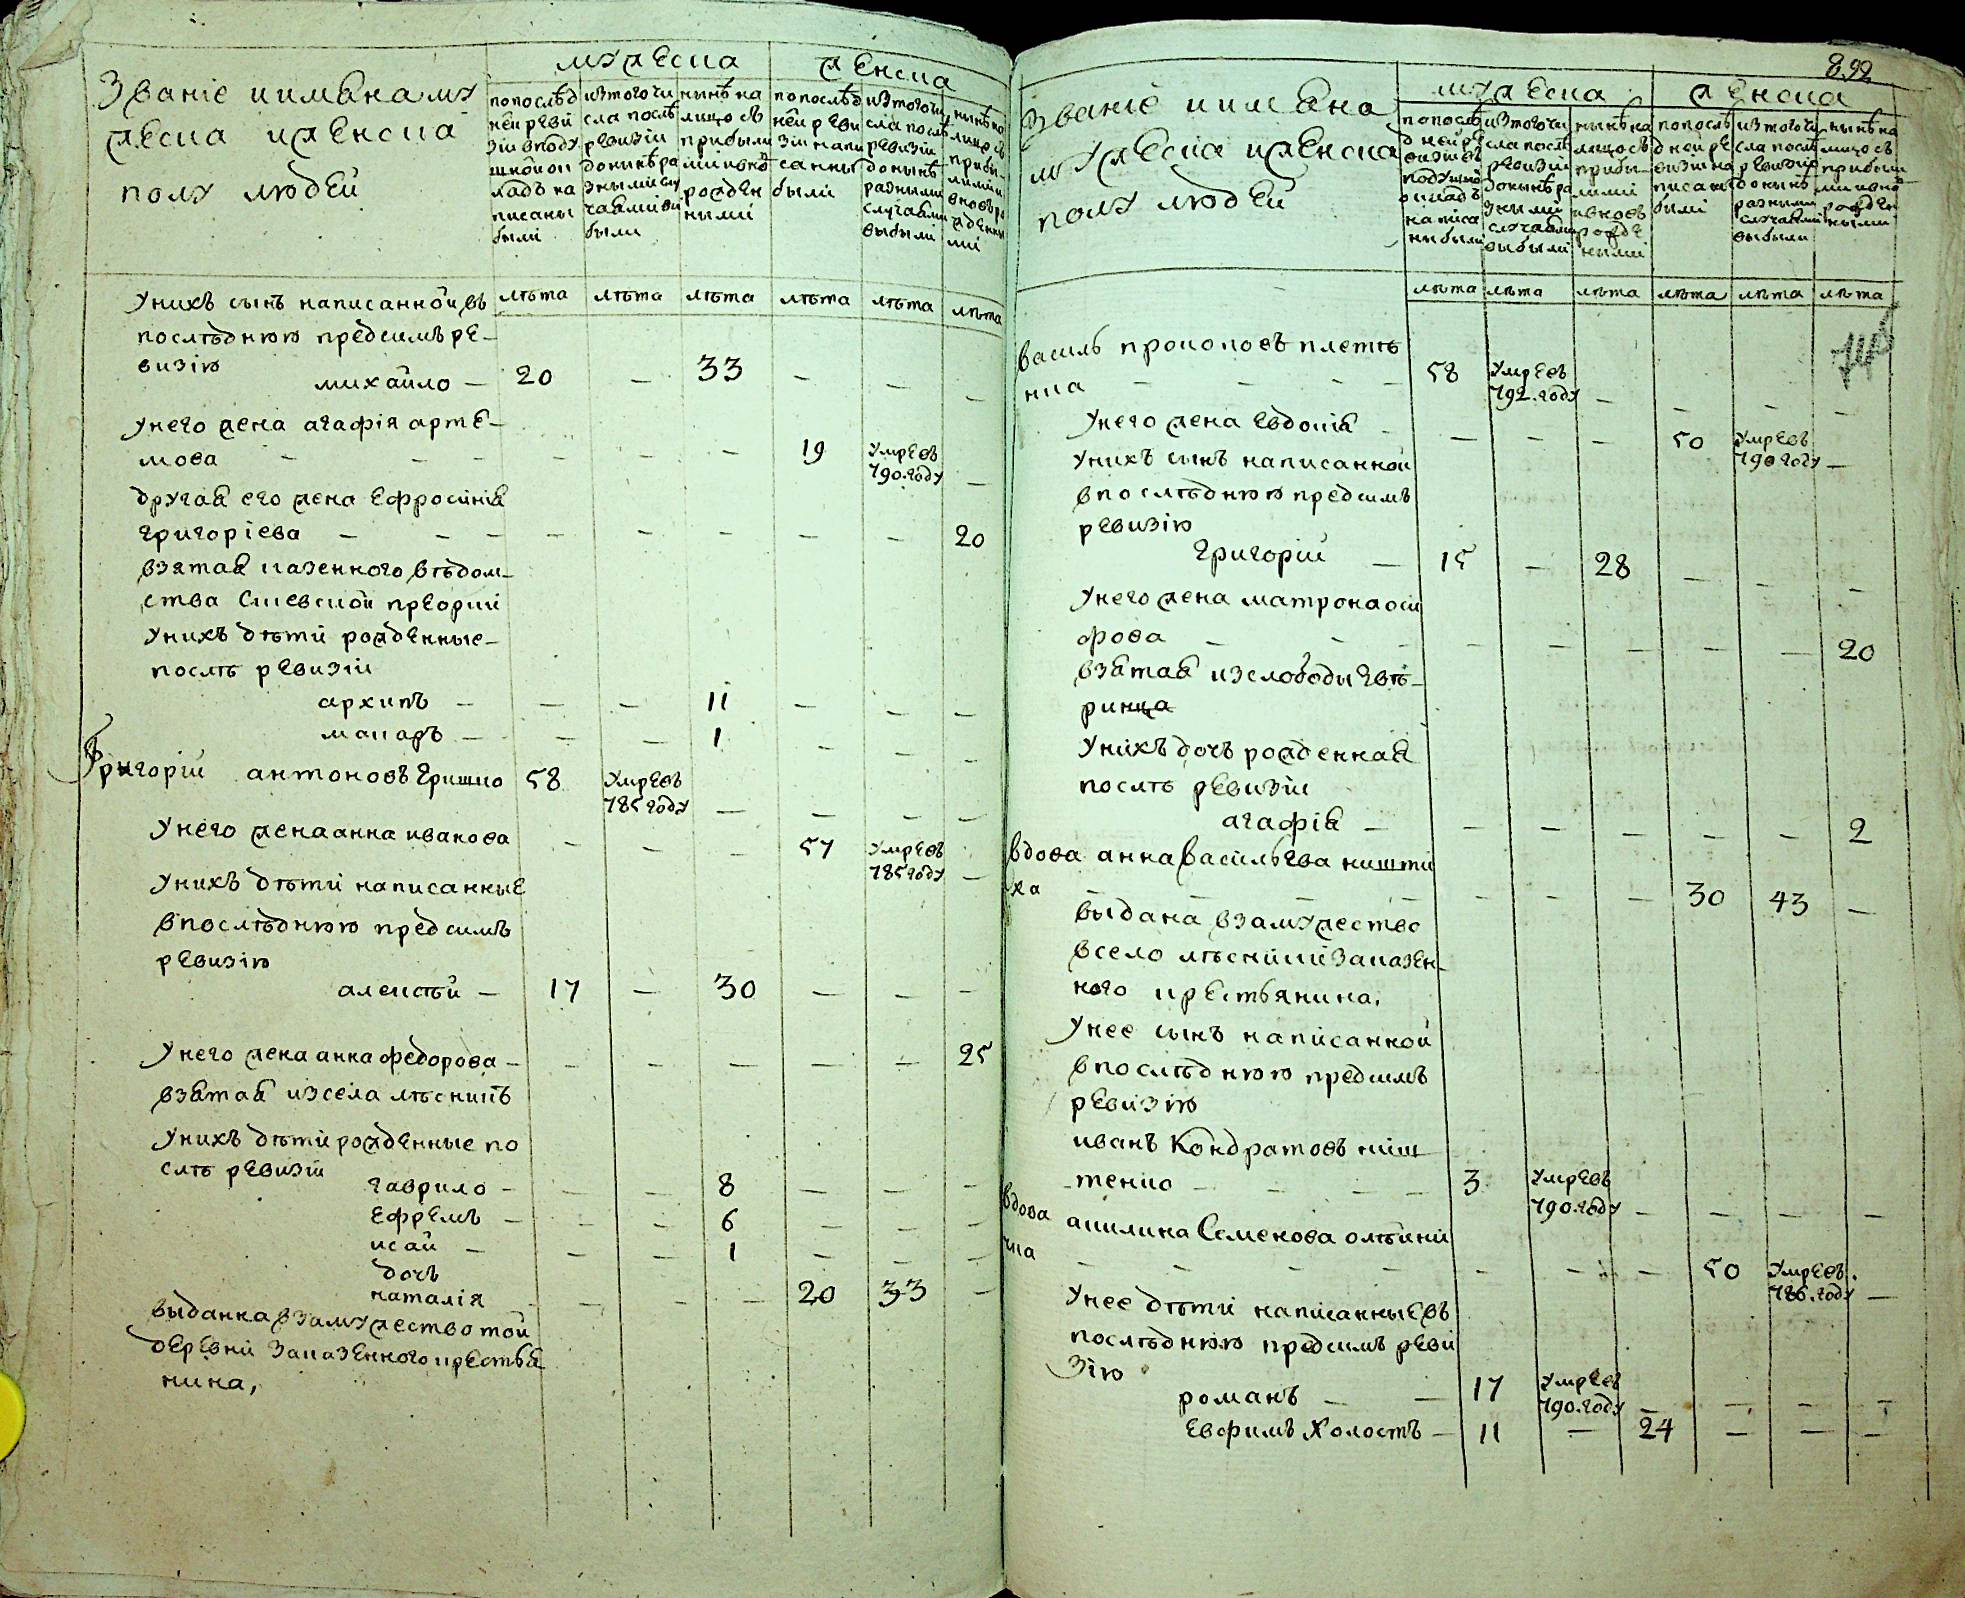 Званіе и имѣна му
жеска и женска
полу людей
мужеска
женска
попослѣд
ней реви
зіи вподу
шной ок
ладъ на
писаны
были
изтого чи
сла послѣ
ревизіи
донынѣ ра
зными слу
чаями вы
были
нынѣ на
лицо съ
прибыли
ми и вно
рожден
ными
попослѣд
ней реви
зіи напи
санны
были
изтого чи
сла послѣ
ревизіи
донынѣ
разными
случаями
выбыли
нынѣ на
лицо съ
прибы
лыми и
вновь ро
жденны
ми
лѣта лѣта лѣта лѣта лѣта лѣта
Унихъ сынъ написанной въ
послѣднюю предсимъ ре-
визію
михайло - 20 - 33 - - -
Унего жена агафія арте-
мова - - - - - - 19 Умревъ -
790. году
другая его жена Ефросинія
григоріева - - - - - - - - 20
взятая казенного вѣдом-
ства Сиевской
Унихъ дѣти рожденные-
послѣ ревизіи
архипъ - - - 11 - - -
макаръ - - - 1 - - -
Григорій антоновъ Гришко 58 Умревъ - - - -
785 году
Унего жена анна иванова - - - 57 Умревъ -
785 году
Унихъ дѣти написанные
впослѣднюю предсимъ
ревизію
алексѣй - 17 - 30 - - -
Унего жена анна федорова - - - - - - 25
взятая изсела лѣскикъ
Унихъ дѣти рожденные по
слѣ ревизіи
гаврило - - - 8 - - -
Ефремъ - - - 6 - - -
исай - - - 1 - - -
дочь
наталія - - - - 20 33 -
выданна взамужество той
деревни заказенного крестья
нина,
892
Званіе и имѣна
мужеска и женска
полу людей
мужеска
женска
попослѣ
дней ре
визіи въ
подушно
окладъ
написа
ны были
изтого чи
сла послѣ
ревизіи
донынѣ ра
зными
случаями
выбыли
нынѣ на
лицо съ
прибы-
лыми
ивновь
рожде
ными
попослѣ
дней ре
визіи на
писаны
были
изтого чи
сла послѣ
ревизіи
донынѣ
разными
случаями
выбыли
нынѣ на
лицо съ
прибыли
ми и вно
рожден
ными
лѣта лѣта лѣта лѣта лѣта лѣта
василь прокоповъ плетѣ
нка - - - - 58 Умревъ - - - -
792. году
Унего жена Евдокія - - - - 50 Умревъ -
790 году
Унихъ сынъ написанной
впослѣднюю предсимъ
ревизію
григорій - 15 - 28 - - -
Унего жена матрона оси
фова - - - - - - - - 20
взятая изслободы
Унихъ дочь рожденная
послѣ ревизіи
агафія - - - - - - 2
вдова анна васильева кишти
ха - - - - - - - 30 43 -
выдана взамужество
всело лѣскики заказен-
ного крестьянина,
Унее сынъ написанной
впослѣднюю предсимъ
ревизію
иванъ Кондратовъ киш
тенко - - - - 3 Умревъ - - - -
790. году
вдова акилина Семенова олѣйни
чка - - - - - - - 50 Умревъ. -
786. году
Унее дѣти написанные въ
послѣднюю предсимъ реви
зію
романъ - - 17 Умревъ - - - -
790. году
Евфимъ Холостъ - 11 - 24 - - -